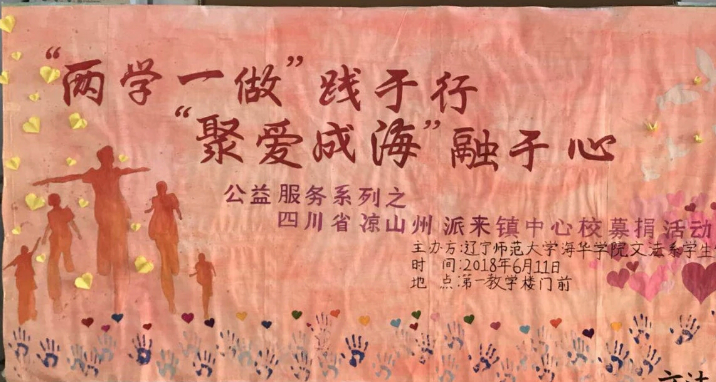 “两学一做”践于行
“聚爱成海”融于心
公益服务系列之
四川省凉山州派来镇中心校募捐活动
主办方:辽宁师范大学海华学院文法系学生
时 间:2018年6月11日
地 点:第一教学楼门前
文法